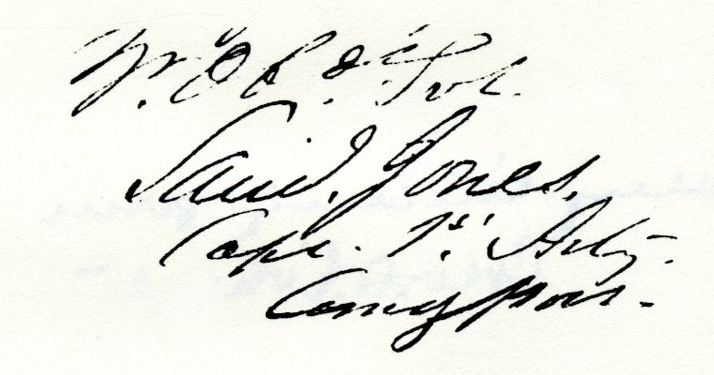 Yr. Svt.
Saml. Jones,
Capt. 1st Arty.
Comg Post.-